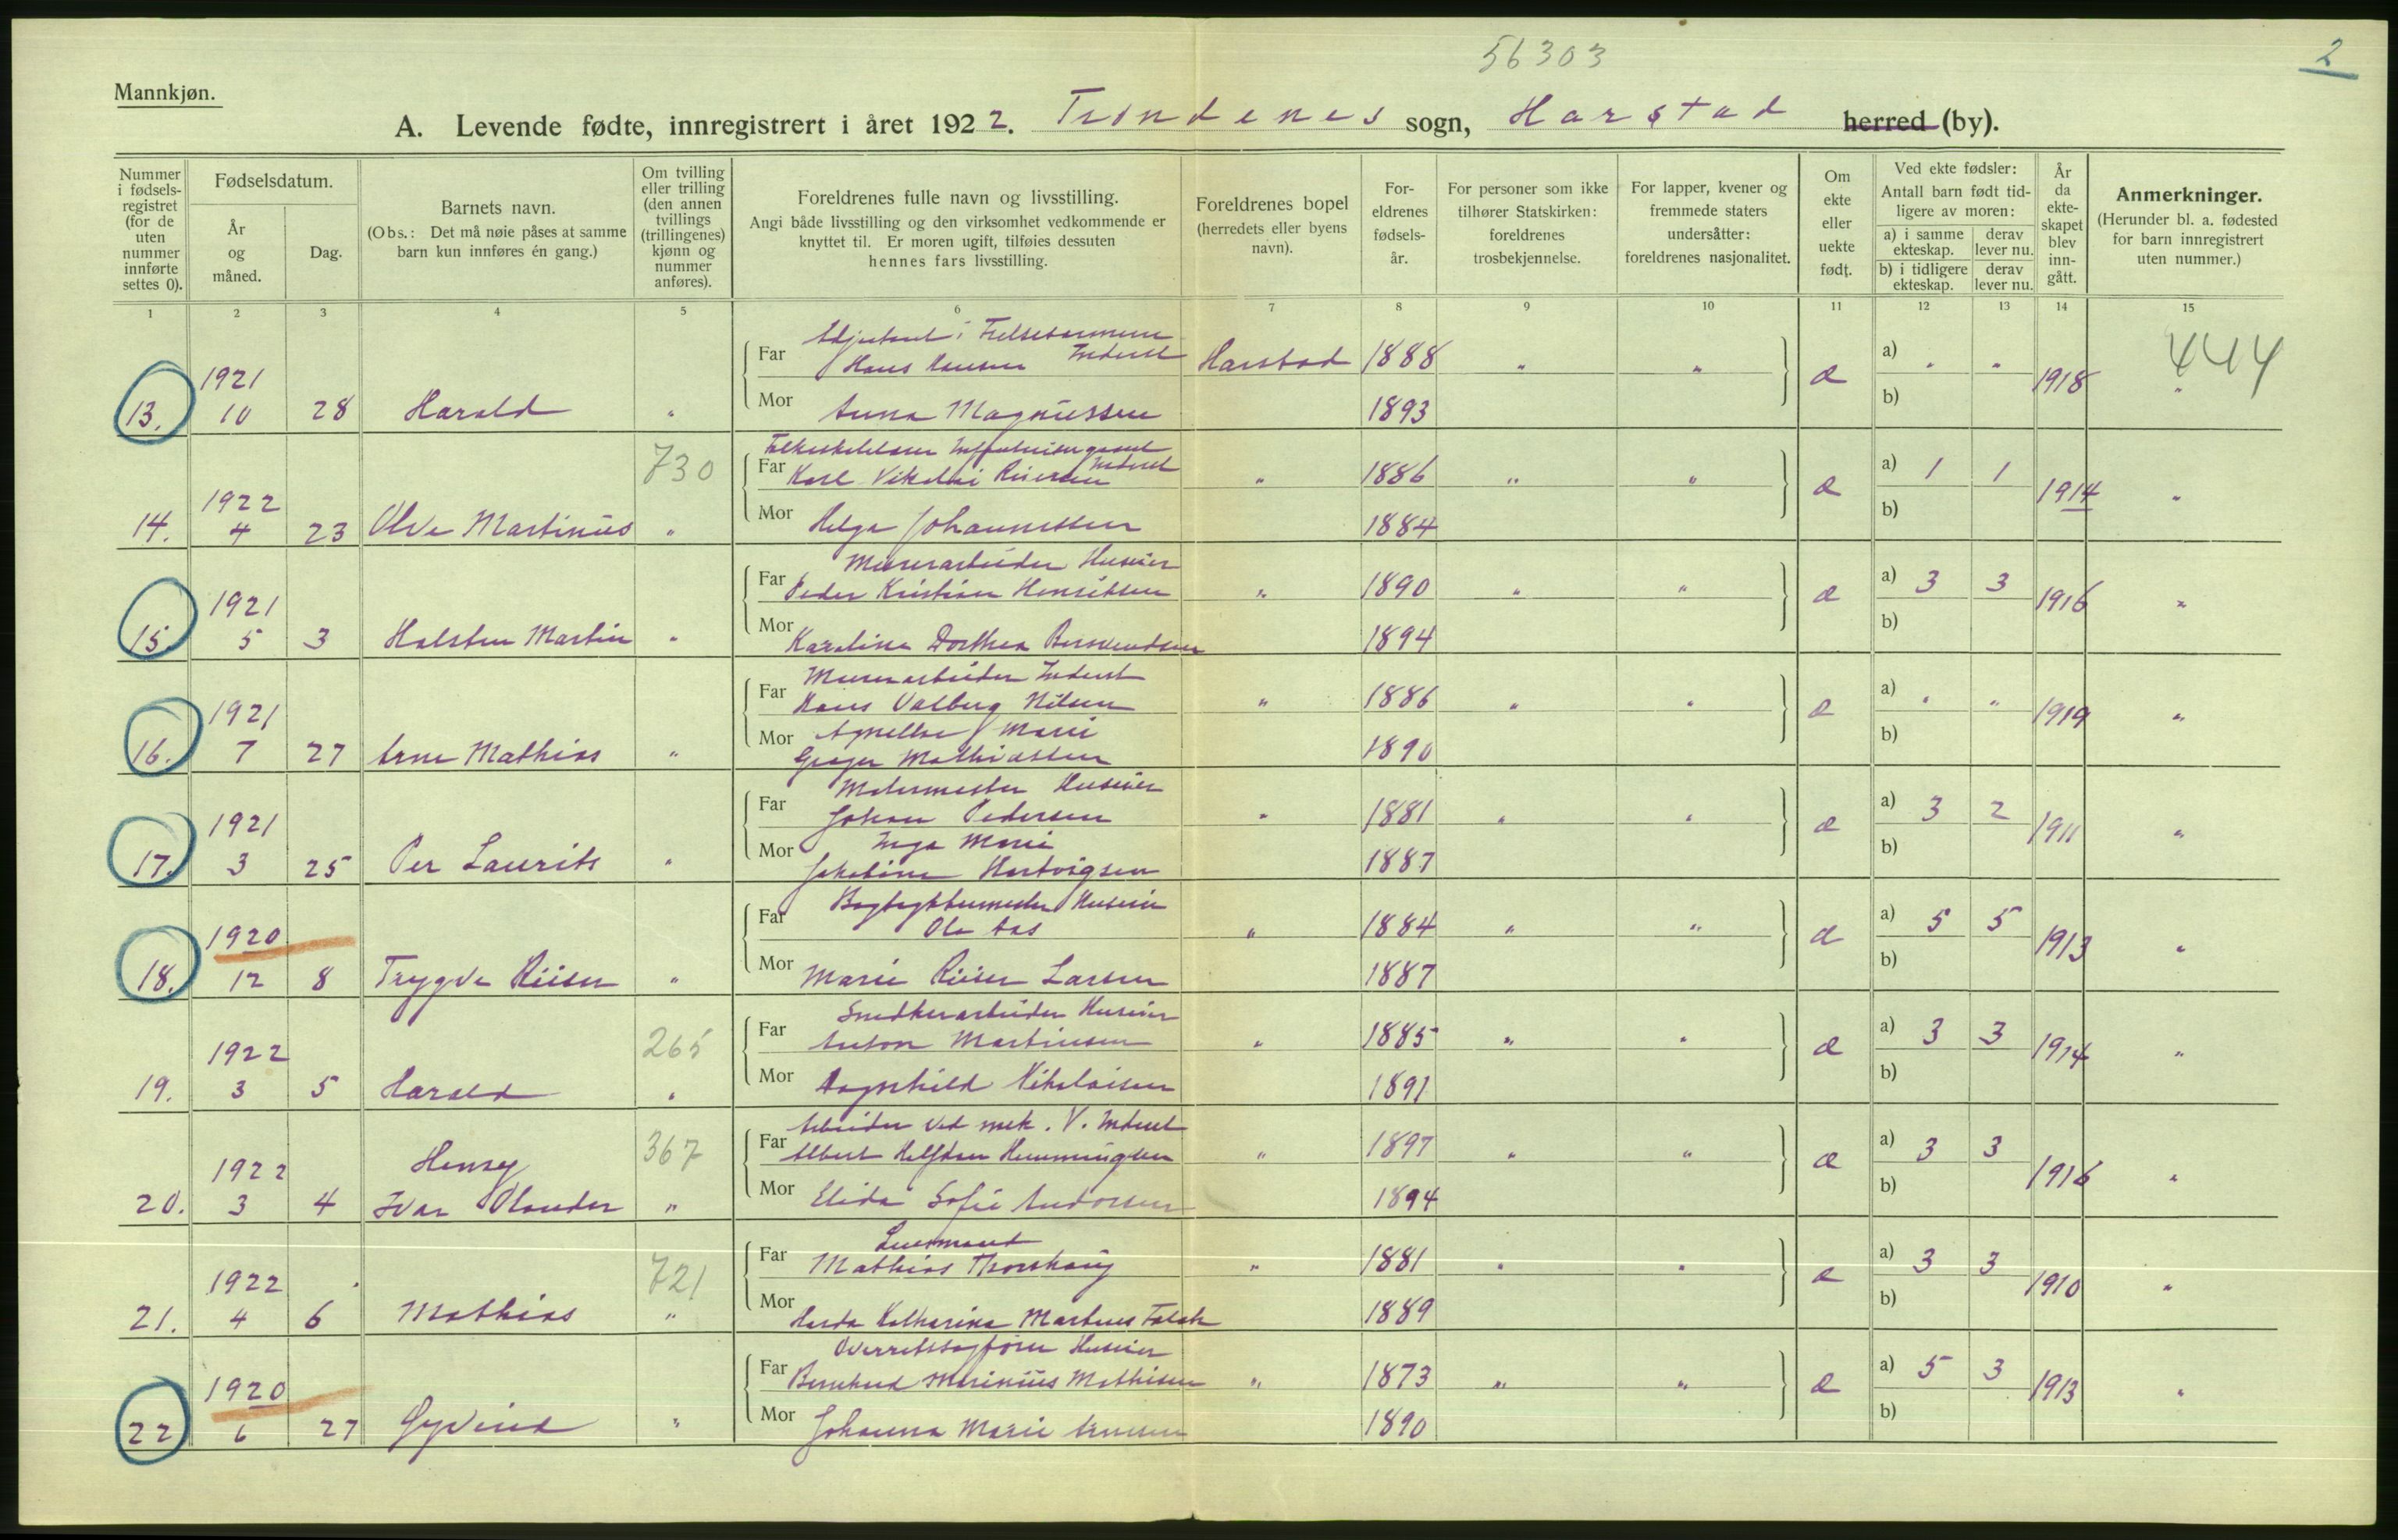 56303
2
Mannkjøn.
A. Levende fødte, innregistrert i året 1922. Trondenes sogn, Harstad herred (by).
Nummer i fødsels-registret (for de uten nummer innførte settes 0).
Fødselsdatum.
År og måned.
Dag.
Barnets navn.
(Obs.: Det må nøie påses at samme barn kun innføres én gang.)
Om tvilling eller trilling (den annen tvillings (trillingenes) kjønn og nummer anføres).
Foreldrenes fulle navn og livsstilling.
Angi både livsstilling og den virksomhet vedkommende er knyttet til. Er moren ugift, tilføies dessuten hennes fars livsstilling.
Foreldrenes bopel (herredets eller byens navn).
For-eldrenes fødsels-år.
For personer som ikke tilhører Statskirken: foreldrenes trosbekjennelse.
For lapper, kvener og fremmede staters undersåtter: foreldrenes nasjonalitet.
Om ekte eller uekte født.
Ved ekte fødsler:
Antall barn født tid-ligere av moren:
a) i samme ekteskap.
derav lever nu.
b) i tidligere ekteskap.
derav lever nu.
År da ekte-skapet blev inn-gått.
Anmerkninger.
(Herunder bl. a. fødested for barn innregistrert uten nummer.)
1 2 3 4 5 6 7 8 9 10 11 12 13 14 15
Adjutant i Frelsesarmeen
Far Hans Hansen Inderst Harstad 1888 " " a) " " 444
1921 æ 1918 "
13. 10 28 Harald " Mor Anna Magnussen 1893 b)
730 Inderst
Far Karl Nikolai Reiersen " 1886 " " a) 1 1
1922 æ 1914 "
14. 4 23 Olve Martinus " Mor Helga Johannessen 1884 b)
Murerarbeider Huseier
Far Peder Kristian Henriksen " 1890 " " a) 3 3
1921 æ 1916 "
15. 5 3 Halsten Martin " Mor Karoline Dorthea 1894 b)
Murerarbeider Inderst
Far Hans Valberg Nilsen " 1886 " " a) " "
1921 æ 1919 "
Mor Marie
16. 7 27 Arne Mathias " Mathiassen 1890 b)
Malermester Huseier
Far Johan Pedersen " 1881 " " a) 3 2
1921 æ 1911 "
Mor Inga Marie
17. 3 25 Per Laurits " Jakobine Hartvigsen 1887 b)
Huseier
Far Ola Aas " 1884 " " a) 5 5
1920 æ 1913 "
18. 12 8 Trygve Riiser " Mor Marie Riiser Larsen 1887 b)
Snedkerarbeider Huseier
265 Far Anton Martinsen " 1885 " " a) 3 3
1922 æ 1914 "
19. 3 5 Harald " Mor Nikolaisen 1891 b)
Arbeider ved mek. V. Inderst
367 Far Albert Halfdan Hemmingsen " 1897 " " a) 3 3
1922 Henry æ 1916 "
20. 3 4 Ivar Olander " Mor Elida Sofie Andorsen 1894 b)
Lensmand
721 Far Mathias Thorshaug " 1881 " " a) 3 3
1922 æ 1910 "
21. 4 6 Mathias " Mor Katharina Martens Falch 1889 b)
Overretssagfører Huseier
Far Bernhard Marinius Mathisen " 1873 " " a) 5 3
1920 æ 1913 "
22 6 27 Øyvind " Mor Johanna Marie Arnesen 1890 b)